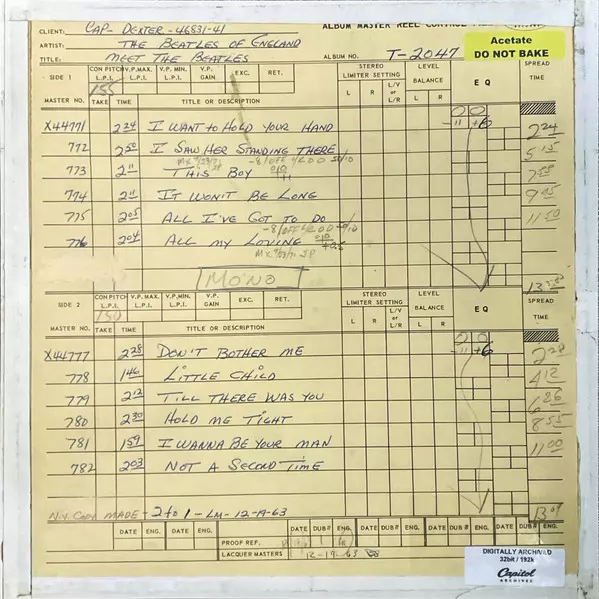 CLIENT: CAP- DEXTER -46831-41 ALBUM MASTER REEL CONTROL
ARTIST: THE BEATLES OF ENGLAND
TITLE: MEET THE BEATLES ALBUM NO. T-2047
Acetate
DO NOT BAKE
SIDE 1 CON PITCH L.P.I. V.P.MAX. L.P.I. V.P. MIN. L.P.I. V.P. GAIN EXC. RET. STEREO LIMITER SETTING LEVEL BALANCE EQ SPREAD TIME
155
MASTER NO. TAKE TIME TITLE OR DESCRIPTION L R L/V or L/R L R
-11 +6
X44771 2 24 I WANT to HOLD YOUR HAND 2 24
772 2 50 I SAW HER STANDING THERE 5 15
773 2 11 THIS BOY
774 2 11 IT WON'T BE LONG
775 2 05 ALL I'VE GOT TO DO 11 50
776 2 04 ALL MY LOVING
MONO
SIDE 2 CON PITCH L.P.I. V.P. MAX. L.P.I. V.P. MIN. L.P.I. V.P. GAIN EXC. RET. STEREO LIMITER SETTING LEVEL BALANCE EQ SPREAD TIME
150
MASTER NO. TAKE TIME TITLE OR DESCRIPTION L R L/V or L/R L R
-11 +6
X44777 2 28 DON'T BOTHER ME 2 28
778 1 46 LITTLE CHILD 4 12
779 2 12 TILL THERE WAS YOU
780 2 30 HOLD ME TIGHT 8 55
781 1 59 I WANNA BE YOUR MAN 11 00
782 2 03 NOT A SECOND TIME
MADE - 2 to 1 - LM - 12-19-63
DATE ENG. DATE ENG. DATE ENG. DATE DUB# ENG. DATE DUB# ENG.
PROOF REF.
LACQUER MASTERS 12-19-63
DIGITALLY ARCHIVED
32bit / 192k
Capitol
ARCHIVES